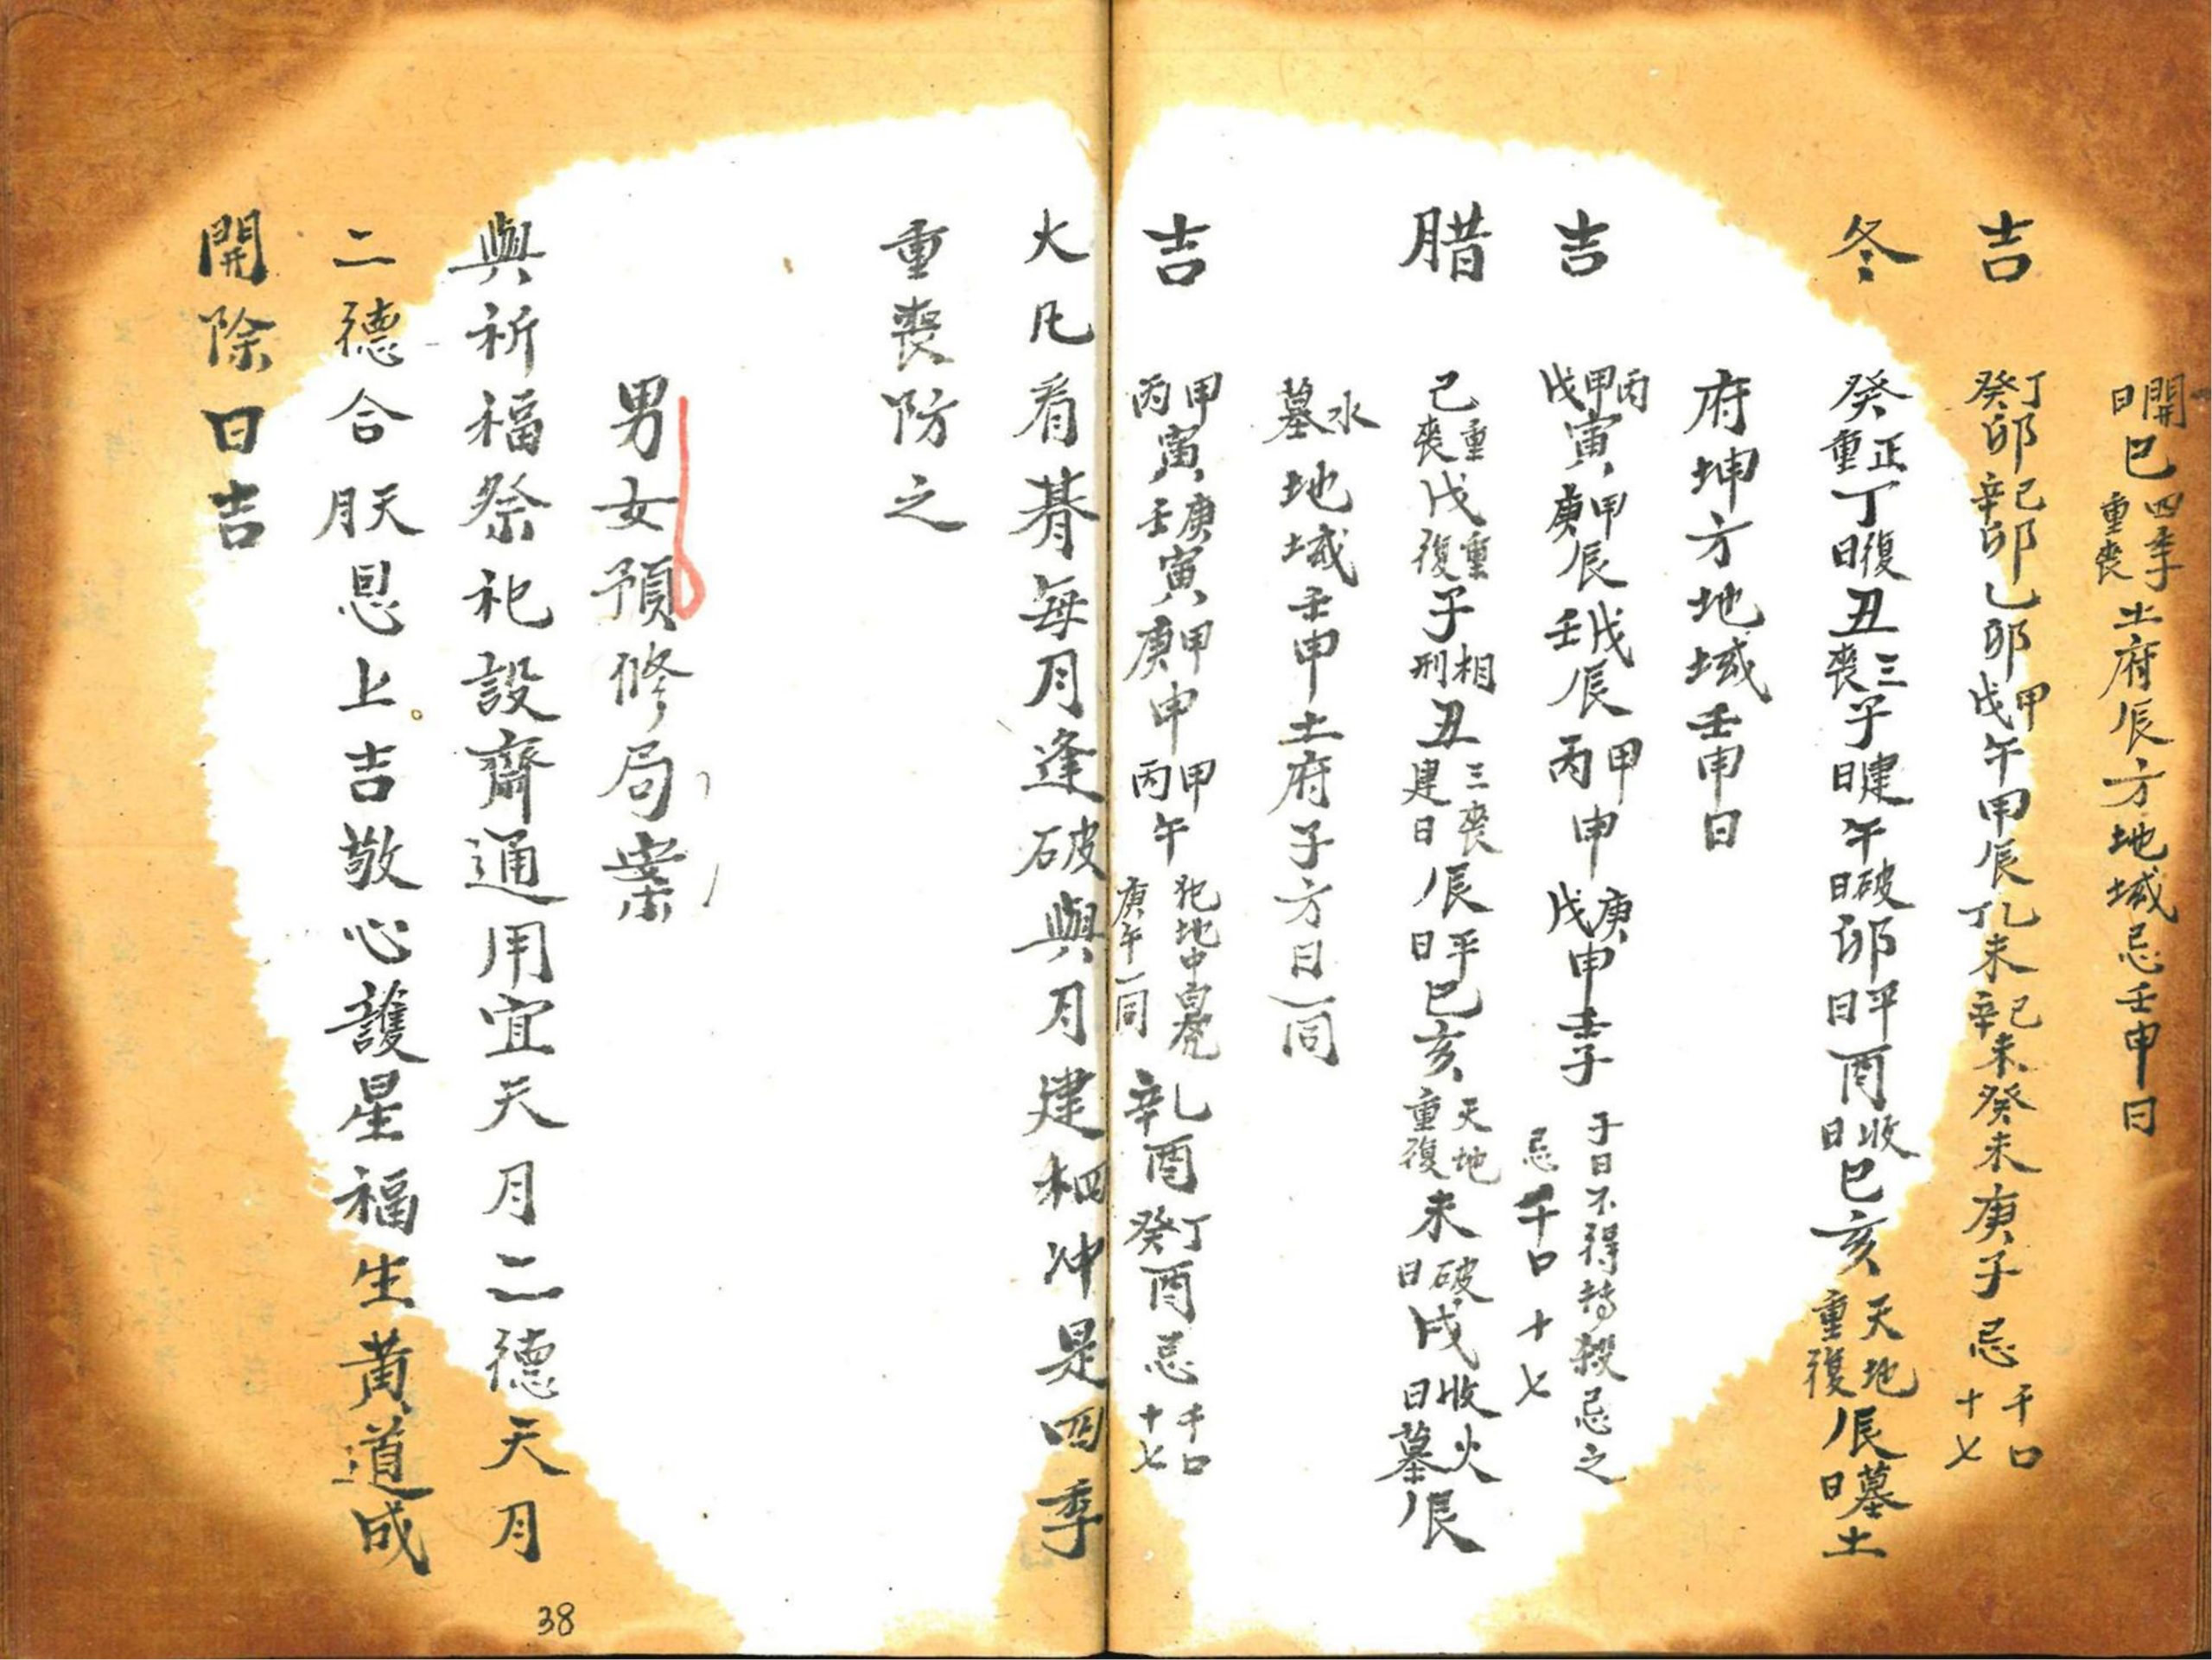 開日巳四季重喪土府辰方地域忌壬申日
吉 丁癸卯己辛卯乙卯甲戊午甲辰乙丁未己辛未癸未庚子忌千口十七
冬 癸正重丁復日丑三喪子建日午破日卯平日酉收日巳亥天地重復辰墓日土
府坤方地域壬申日
吉 丙甲戊寅甲庚辰戊壬辰甲丙申庚戊申壬子子日不得轉殺忌之忌千口十七
腊 己重喪戊重復子相刑丑三喪建日辰平日巳亥天地重復未破日戌收日火墓辰
水墓地域壬申土府子方日同
吉 甲丙寅庚壬寅甲庚申甲丙午犯地中白虎庚午同乙辛酉丁癸酉忌千口十七
大凡看朞每月逢破與月建相冲是四季
重喪防之
男女預修局案
與祈福祭祀設齋通用宜天月二德天月
二德合天月恩上吉敬心護星福生黃道成
開除日吉
38